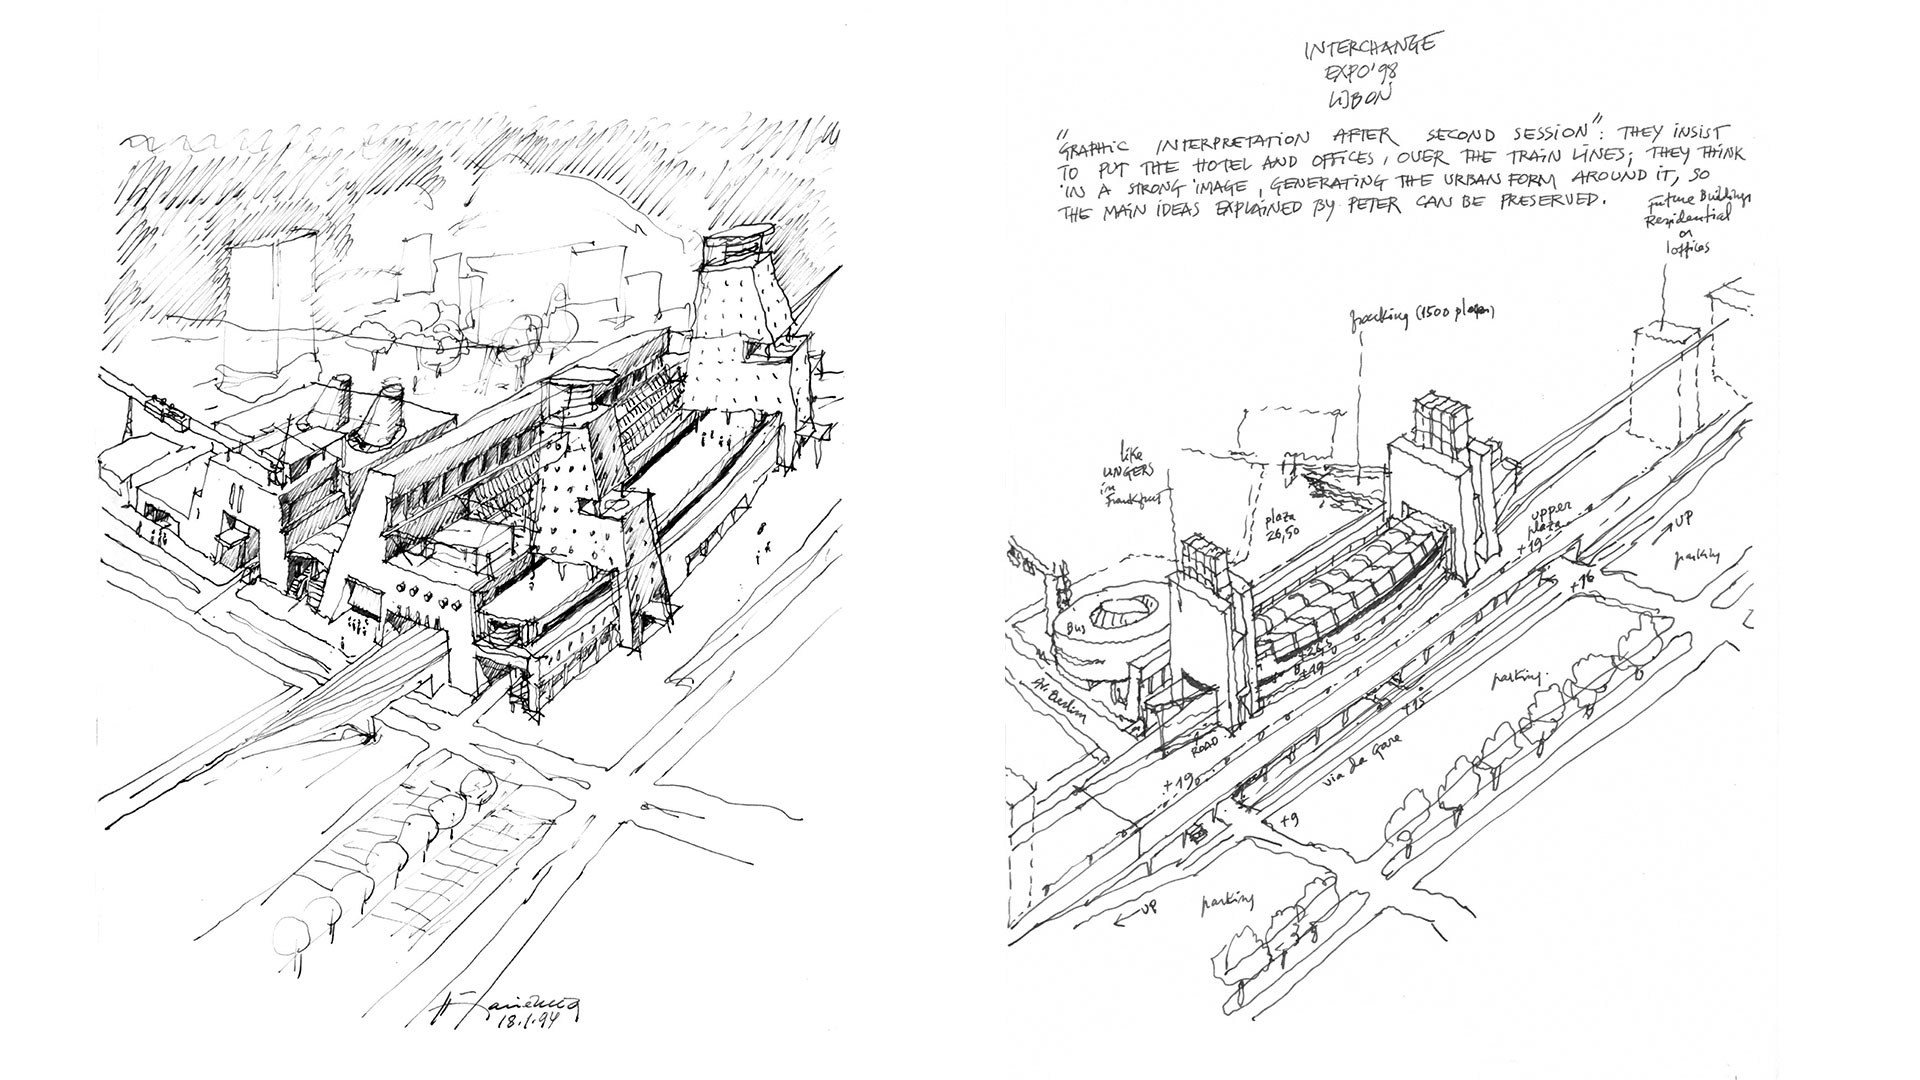 18.1.94
INTERCHANGE
EXPO'98
LISBON
"GRAPHIC INTERPRETATION AFTER SECOND SESSION": THEY INSIST
TO PUT THE HOTEL AND OFFICES, OVER THE TRAIN LINES; THEY THINK
IN A STRONG IMAGE, GENERATING THE URBAN FORM AROUND IT, SO
THE MAIN IDEAS EXPLAINED BY PETER CAN BE PRESERVED.
Future Buildings
Residential
or
offices
parking (1500 places)
like
UNGERS
in
Frankfurt
plaza
26,50
upper
plaza
+19
UP
parking
+16
Bus
Av. Berlim
+19
parking
+15
ROAD
via da Gare
+19
+9
parking
UP